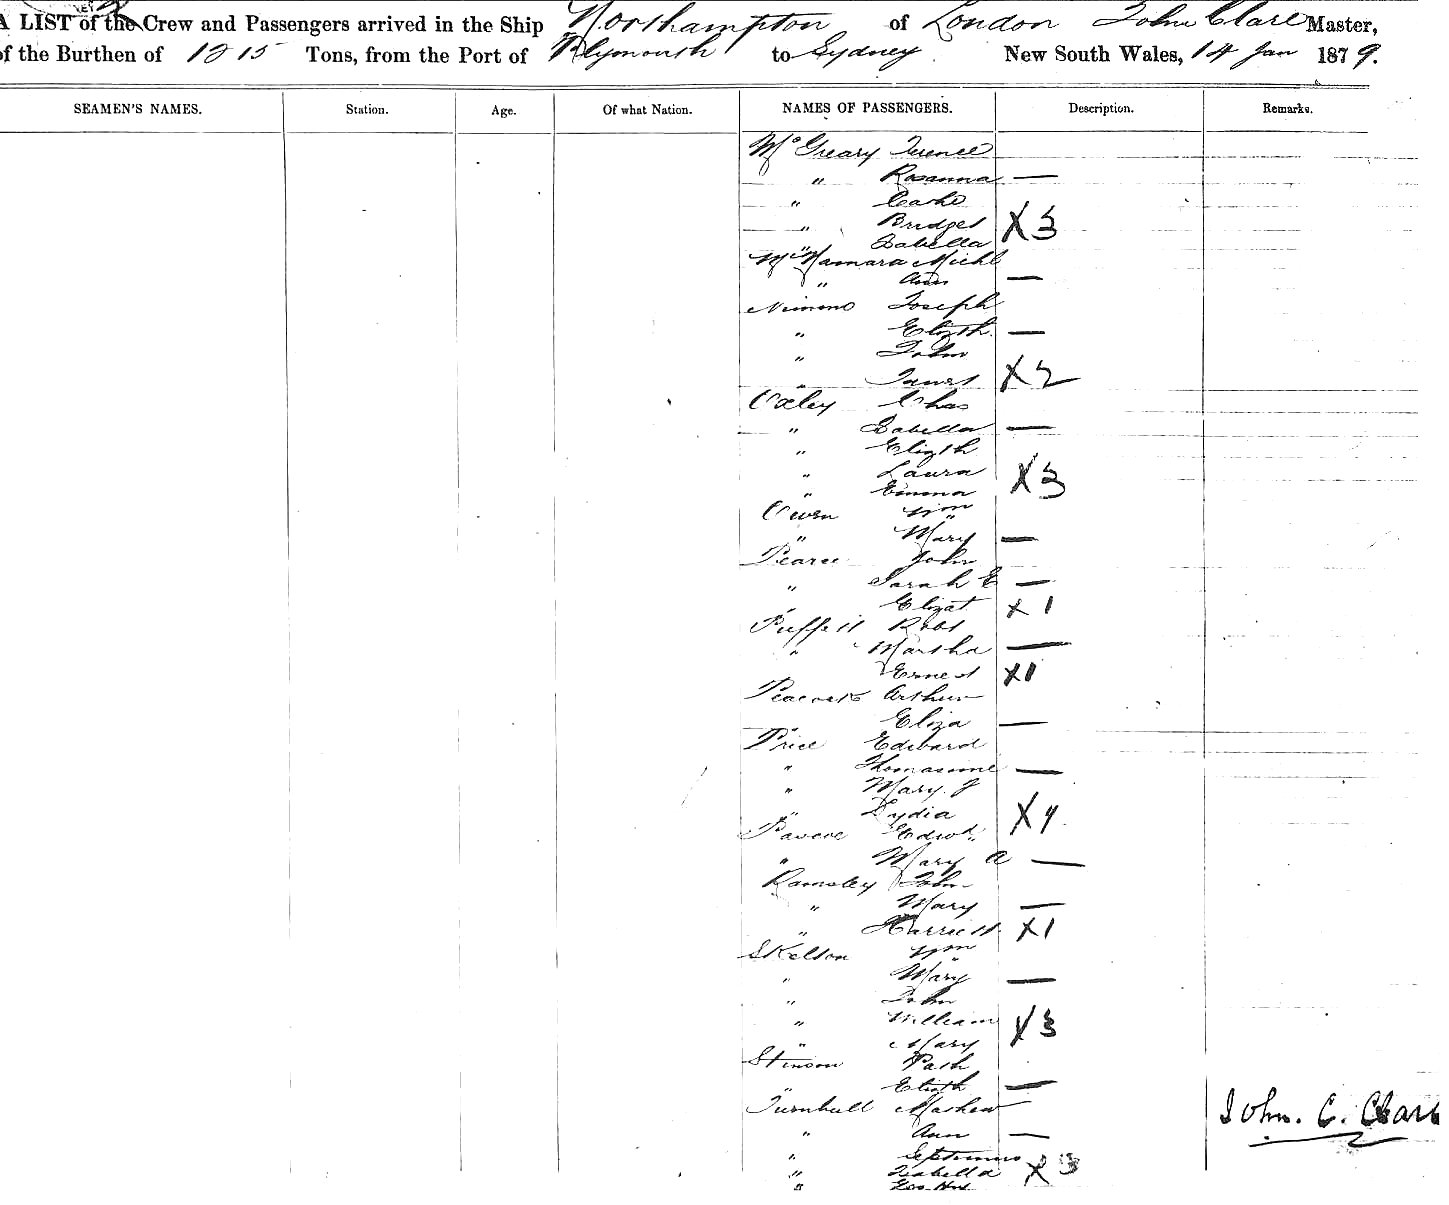 A LIST of the Crew and Passengers arrived in the Ship Northampton of London John Clare Master,
of the Burthen of 1215 Tons, from the Port of Plymouth to Sydney New South Wales, 14 Jan 1879.
SEAMEN'S NAMES. Station. Age. Of what Nation. NAMES OF PASSENGERS. Description. Remarks.
McGreary Terence
" Rosanna —
" Cathe
" Bridget X3
" Isabella
McNamara Michl
" Ann —
Nimmo Joseph
" Elizth —
" John
" Janet X2
Oxley Chas
" Isabella —
" Elizth
" Laura X3
" Emma
Owen Wm
" Mary —
Pearce John
" Sarah E —
" Elizat X1
Puffett Robt
" Martha —
Ernest X1
Peacock Arthur
" Eliza —
Price Edward
" Thomasine —
" Mary J
" Lydia X4
Pascoe Edwd
" Mary A —
Ramsley John
" Mary —
" Harriett X1
Skelton Wm
" Mary —
" John
" William X3
" Mary
Stinson Patk
" Elizth —
Turnbull Mathew
" Ann —
" Septimus
" Isabella X3
"
John. C. Clare